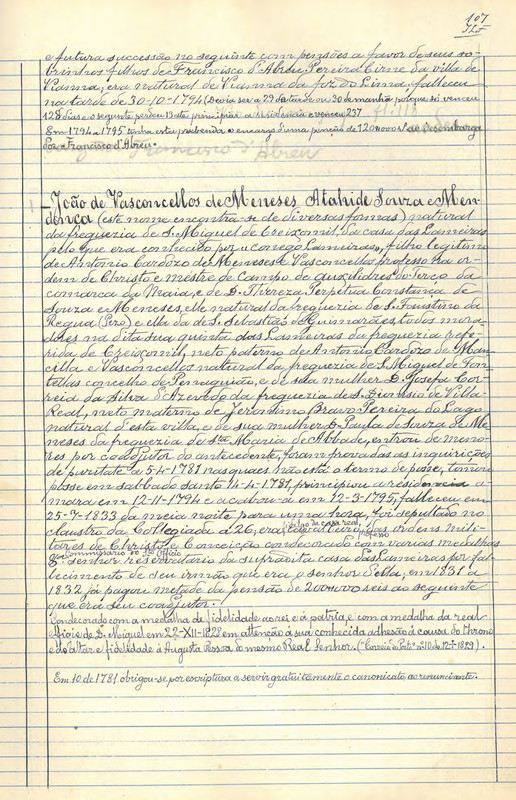 107
e futura successão no seguinte com pensões a favor de seus so-
brinhos filhos de Francisco d'Abreu Pereira Cirne da villa de
Vianna, era natural de Vianna da Foz do Lima, falleceu
na tarde de 30-10-1794 (Devia ser a 29 de tarde ou 30 de manhã porque só venceu
128 dias e o seguinte perdeu 13 até principiar a residencia e venceu 237
Em 1794 a 1795 tinha esta prebenda o encargo d'uma pensão de 120$000 rs ao desembarga
dor Francisco d'Abreu.
Francisco d'Abreu
João de Vasconcellos de Meneses Atahide Souza e Men-
donça (este nome encontra-se de diversas formas) natural
da freguezia de S. Miguel de Creixomil, da casa das Lameiras
pelo que era conhecido por o conego Lameiras, filho legitimo
de Antonio Cardozo de Meneses e Vasconcellos professo na or-
dem de Christo e mestre de Campo de auxiliares do Terço da
comarca da Maia, e de D. Thereza Perpetua Constança de
Souza e Meneses, elle natural da freguezia de S. Faustino da
Regua (Pezo) e ella da de S. Sebastião de Guimarães, todos mora-
dores na dita sua quinta das Lameiras da freguezia refe-
rida de Creixomil, neto paterno de Antonio Cardozo de Man-
cilla e Vasconcellos natural da freguezia de S. Miguel de Fon-
tellas concelho de Penaguião, e de sua mulher D. Josefa Cor-
reia da Silva d'Azevedo da freguezia de S. Dionisio de Villa-
Real, neto materno de Jeronimo Bravo Pereira do Lago
natural d'esta villa, e de sua mulher D. Paula de Souza de Me-
neses da freguezia de Sta Maria de Abbade, entrou de meno-
res por coadjutor do antecedente, foram provadas as inquirições
de puritate a 5-4-1781 nas quaes não está o termo de posse, tomou
posse em sabbado santo 14-4-1781, principiou a residencia a
mora em 12-11-1794 e acabou-a em 12-3-1795, falleceu em
25-7-1833 da meia noite para uma hora, foi sepultado no
claustro da Collegiada a 26, era fidalgo da casa real, cavalleiro professo das ordens mili-
tares de Christo e Conceição condecorado com varias medalhas
e commissario do Sto Officio
senhor reservatario da supradita casa das Lameiras por fal-
lecimento de seu irmão que era o senhor d'ella; em 1831 a
1832 já pagou metade da pensão de 200$000 reis ao seguinte
que era seu coadjutor.
Condecorado com a medalha da fidelidade ao rei e á patria, e com a medalha da real
efigie de D. Miguel em 22-XII-1828 em attenção á sua conhecida adhesão á causa do throno
e do altar e fidelidade á Augusta Pessoa do mesmo Real Senhor. ("Correio do Porto" nº 10 de 12-I-1829).
Em 10 de 1781 obrigou-se por escriptura a servir gratuitamente o canonicato ao renunciante.